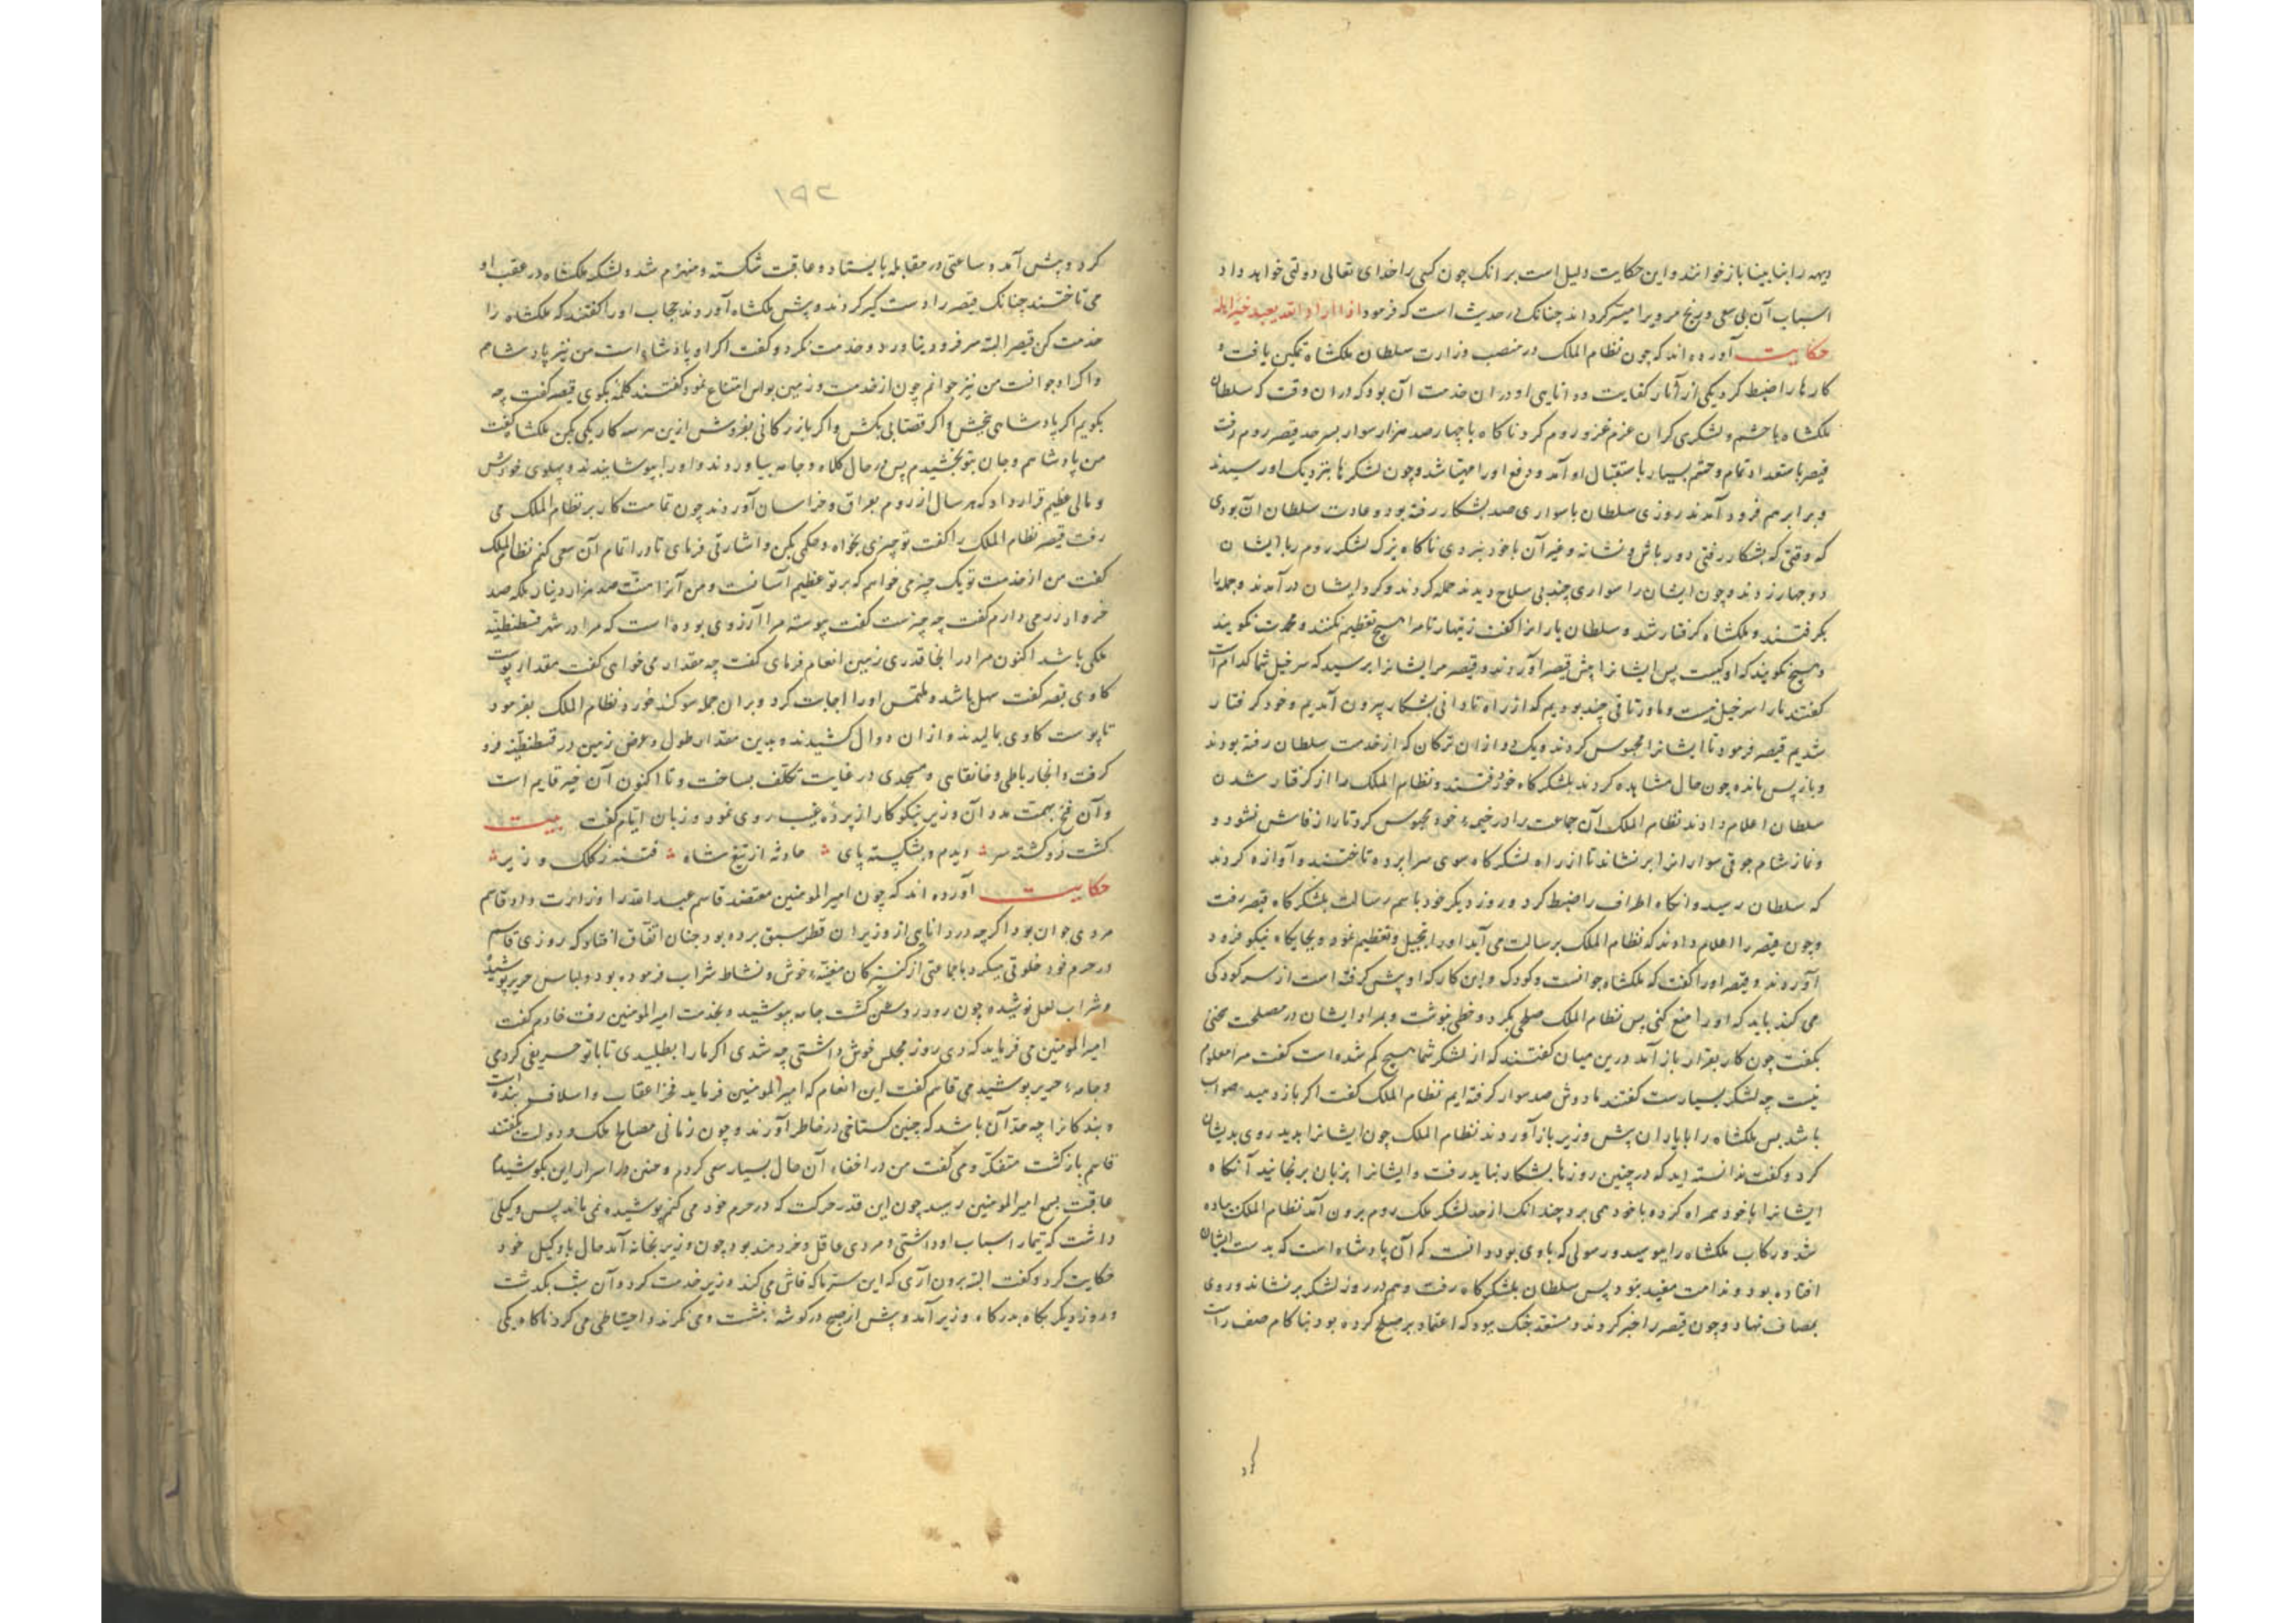 دیهه را بنا بینا باز خوانند و این حکایت دلیل است بر آنک چون کسی را خدای تعالی دولتی خواهد داد
اسباب آن بی سعی و رنج مر ویرا میسر کرداند چنانک در حدیث است که فرمود اذا اراد الله بعبد خیرا
حکایت آورده اند که چون نظام الملک در منصب وزارت سلطان ملکشاه تمکین یافت و
کارها را ضبط کرد یکی از آثار کفایت و دانایی او در ان خدمت آن بود که دران وقت که سلطان
ملکشاه با حشم و لشکری کران عزم غزو روم کرد ناکاه با چهار صد هزار سوار بسرحد قیصر روم رفت
قیصر با ستعداد تمام و حشم بسیار باستقبال او آمد و دفع اورا مهیا شد و چون لشکرها بنزدیک اور سیدند
و برابر هم فرود آمدند روزی سلطان با سواری صد بشکار رفته بود و عادت سلطان آن بودی
که وقتی که بشکار رفتی دور باش و نشانه و غیر آن با خود نبردی ناکاه بزک لشکر روم با ایشان
دو چهار زدند و چون ایشان را سواری چند بی سلاح دیدند حمله کردند و کرد ایشان در آمدند و جمله را
بکرفتند و ملکشاه کرفتار شد و سلطان یارانرا کفت زنهار تا مرا هیچ تعظیم نکنند و خدمت نکویند
و هیچ نکویند که او کیست پس ایشانرا پیش قیصر آوردند و قیصر مر ایشانرا پرسید که سرخیل شما کدام است
کفتند ما را سرخیل نیست و ما و تاقی چند بودیم که از راه نادانی بشکار بیرون آمدیم و خود کرفتار
شدیم قیصر فرمود تا ایشانرا محبوس کردند و یک دو ازان ترکان که از خدمت سلطان رفته بودند
و باز پس مانده چون حال مشاهده کردند بلشکرکاه خود رفتند و نظام الملک را از کرفتار شدن
سلطان اعلام دادند نظام الملک آن جماعت را در خیمهٔ خود محبوس کرد تا راز فاش نشود و
نماز شام جوقی سوارانرا بر نشاند تا از راه لشکرکاه سوی سراپرده تاختند و آوازه کردند
که سلطان رسید و انکاه اطراف را ضبط کرد و روز دیکر خود باسم رسالت بلشکرکاه قیصر رفت
و چون قیصر را اعلام دادند که نظام الملک برسالت می آید او را تبجیل و تعظیم نمود و بجایکاه نیکو فرود
آوردند و قیصر اورا کفت که ملکشاه جوانست و کودک و این کار که او پیش کرفته است از سر کودکی
می کند باید که او را منع کنی پس نظام الملک صلحی بکرد و خطی نوشت و بمراد ایشان در مصلحت سخنی
بکفت چون کار بقرار باز آمد درین میان کفتند که از لشکر شما هیچ کم شده است کفت مرا معلوم
نیست چه لشکر بسیارست کفتند ما دوش صد سوار کرفته ایم نظام الملک کفت اکر باز دهید صواب
باشد پس ملکشاه را با یاران پیش وزیر باز آوردند نظام الملک چون ایشانرا بدید روی بدیشان
کرد و کفت ندانسته اید که در چنین روزها بشکار نباید رفت و ایشانرا بزبان برنجانید آنکاه
ایشانرا با خود همراه کرده با خود همی برد چندانک از حد لشکر ملک روم برون آمد نظام الملک پیاده
شد و رکاب ملکشاه را ببوسید و رسولی که با وی بود دانست که آن پادشاه است که بدست ایشان
افتاده بود و ندامت مفید نبود پس سلطان بلشکرکاه رفت و هم در روز لشکر بر نشاند و روی
بمصاف نهاد و چون قیصر را خبر کردند و مستعد جنک نبود که اعتماد بر صلح کرده بود بناکام صف راست
کرد
۱۵۲
کرد و پیش آمد و ساعتی در مقابله بایستاد و عاقبت شکسته و منهزم شد و لشکر ملکشاه در عقب او
می تاختند چنانک قیصر را دست کیر کردند و پیش ملکشاه آوردند حجاب اورا کفتند که ملکشاه را
خدمت کن قیصر البته سر فرود نیاورد و خدمت نکرد و کفت اکر او پادشاه است من نیز پادشاهم
و اکر او جوانست من نیز جوانم چون از خدمت و زمین بوس امتناع نمود کفتند کلمهٔ بکوی قیصر کفت چه
بکویم اکر پادشاهی ببخش و اکر قصابی بکش و اکر بازرکانی بفروش ازین هر سه کار یکی بکن ملکشاه کفت
من پادشاهم و جان بتو بخشیدم پس در حال کلاه و جامه بیاوردند و اورا بپوشانیدند و پهلوی خودش
و مالی عظیم قرار داد که هر سال از روم بعراق و خراسان آوردند چون تمامت کار بر نظام الملک می
رفت قیصر نظام الملک را کفت تو چیزی بخواه و حکمی بکن و اشارتی فرمای تا در اتمام آن سعی کنم نظام الملک
کفت من از خدمت تو یک چیز می خواهم که بر تو عظیم آسانست و من آنرا منت صد هزار دینار بلکه صد
خروار زر می دارم کفت چه چیزست کفت پیوسته مرا آرزوی بوده است که مرا در شهر قسطنطنیه
ملکی باشد اکنون مرا در انجا قدری زمین انعام فرمای کفت چه مقدار می خواهی کفت مقدار پوست
کاوی قیصر کفت سهل باشد و ملتمس اورا اجابت کرد و بران جمله سوکند خورد و نظام الملک بفرمود
تا پوست کاوی بمالیدند و ازان دوال کشیدند و بدین مقدار طول و عرض زمین در قسطنطنیه فرو
کرفت و انجا رباطی و خانقاهی و مسجدی در غایت تکلف بساخت و تا اکنون آن خیر قایم است
و آن فتح بهمت مدد آن وزیر نیکوکار از پرده غیب روی نمود و زبان ایام کفت بیت
کشت زد و کشته سر دیدم و بشکسته پای حادثه از تیغ شاه فتنه ز کلک وزیر
حکایت آورده اند که چون امیر المومنین معتضد قاسم عبد الله را وزارت داد قاسم
مردی جوان بود اکرچه در دانایی از وزیران قطر سبق برده بود چنان اتفاق افتاد که روزی قاسم
در حرم خود خلوتی میکرد با جماعتی از کنیزکان مغنیه خوش و نشاط شراب فرموده بود و لباس حریر پوشیده
و شراب لعل نوشیده چون روز روشن کشت جامه بپوشید و بخدمت امیر المومنین رفت خادم کفت
امیر المومنین می فرماید که دی روز مجلس خوش داشتی چه شدی اکر ما را بطلبیدی تا با تو حریفی کردمی
و جامه حریر پوشیدمی قاسم کفت این انعام که امیر المومنین فرماید فخر اعقاب و اسلاف بنده است
و بندکانرا چه حد آن باشد که چنین کستاخی در خاطر آورند و چون زمانی مصالح ملک و دولت بکفتند
قاسم بازکشت متفکر و می کفت من در اخفاء آن حال بسیار سعی کردم و در اسرار این بکوشیدم
عاقبت بسمع امیر المومنین رسید چون این قدر حرکت که در حرم خود می کنم پوشیده نمی ماند پس وکیلی
داشت که تیمار اسباب او داشتی و مردی عاقل و خردمند بود چون وزیر بخانه آمد حال با وکیل خود
حکایت کرد و کفت البته برون آری که این ستر ما که فاش می کند وزیر خدمت کرد و آن شب بکذشت
و روز دیکر بکاه بدرکاه وزیر آمد و پیش از صبح در کوشهٔ بنشست و می نکرید و احتیاطی می کرد ناکاه یکی